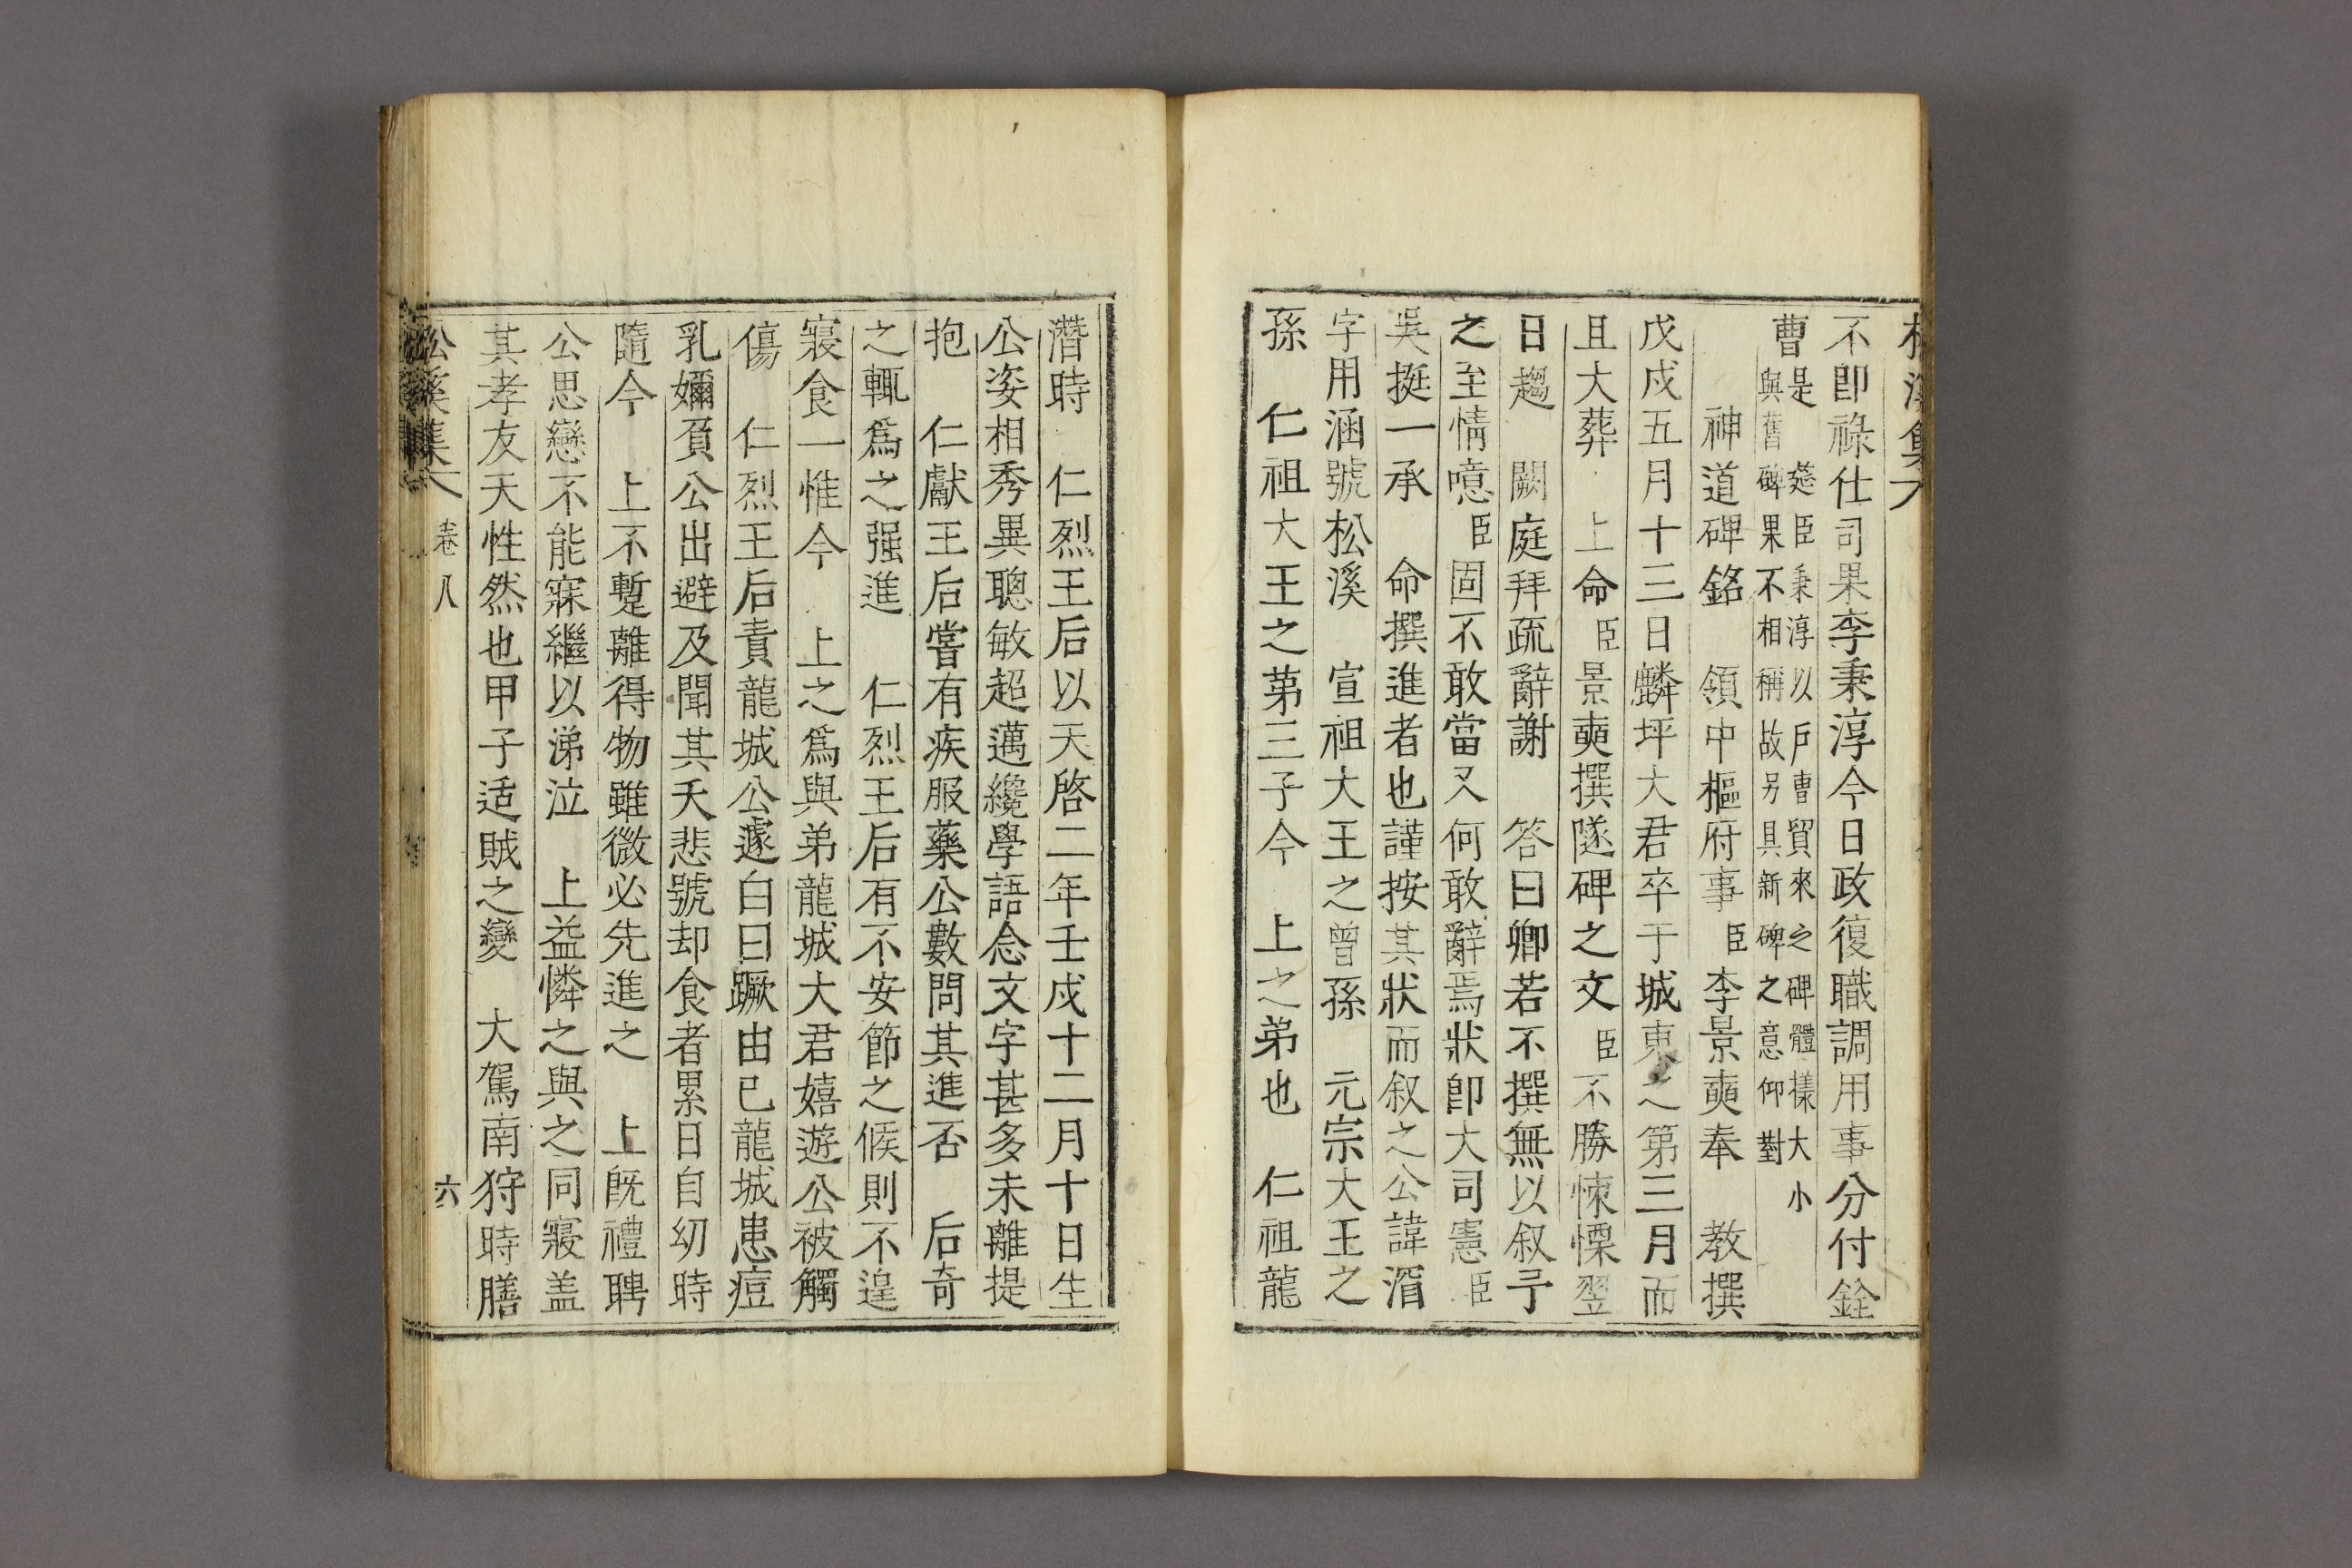 松溪集
不卽祿仕司果李秉淳今日政復職調用事分付銓
曹是 筵臣秉淳以戶曹貿來之碑體樣大小
與舊碑果不相稱故另具新碑之意仰對
神道碑銘 領中樞府事臣李景奭奉 教撰
戊戌五月十三日麟坪大君卒于城東之第三月而
且大葬 上命臣景奭撰隧碑之文臣不勝悚慄翌
日趨 闕庭拜疏辭謝 答曰卿若不撰無以叙予
之至情噫臣固不敢當又何敢辭焉狀卽大司憲臣
吳挺一承 命撰進者也謹按其狀而叙之公諱㴭
字用涵號松溪 宣祖大王之曾孫 元宗大王之
孫 仁祖大王之第三子今 上之弟也 仁祖龍
潛時 仁烈王后以天啓二年壬戌十二月十日生
公姿相秀異聰敏超邁纔學語念文字甚多未離提
抱 仁獻王后嘗有疾服藥公數問其進否 后奇
之輒爲之强進 仁烈王后有不安節之候則不遑
寢食一惟今 上之爲與弟龍城大君嬉遊公被觸
傷 仁烈王后責龍城公遽白曰蹶由已龍城患痘
乳嬭負公出避及聞其夭悲號却食者累日自幼時
隨今 上不蹔離得物雖微必先進之 上旣禮聘
公思戀不能寐繼以涕泣 上益憐之與之同寢盖
其孝友天性然也甲子适賊之變 大駕南狩時膳
松溪集 卷八 六